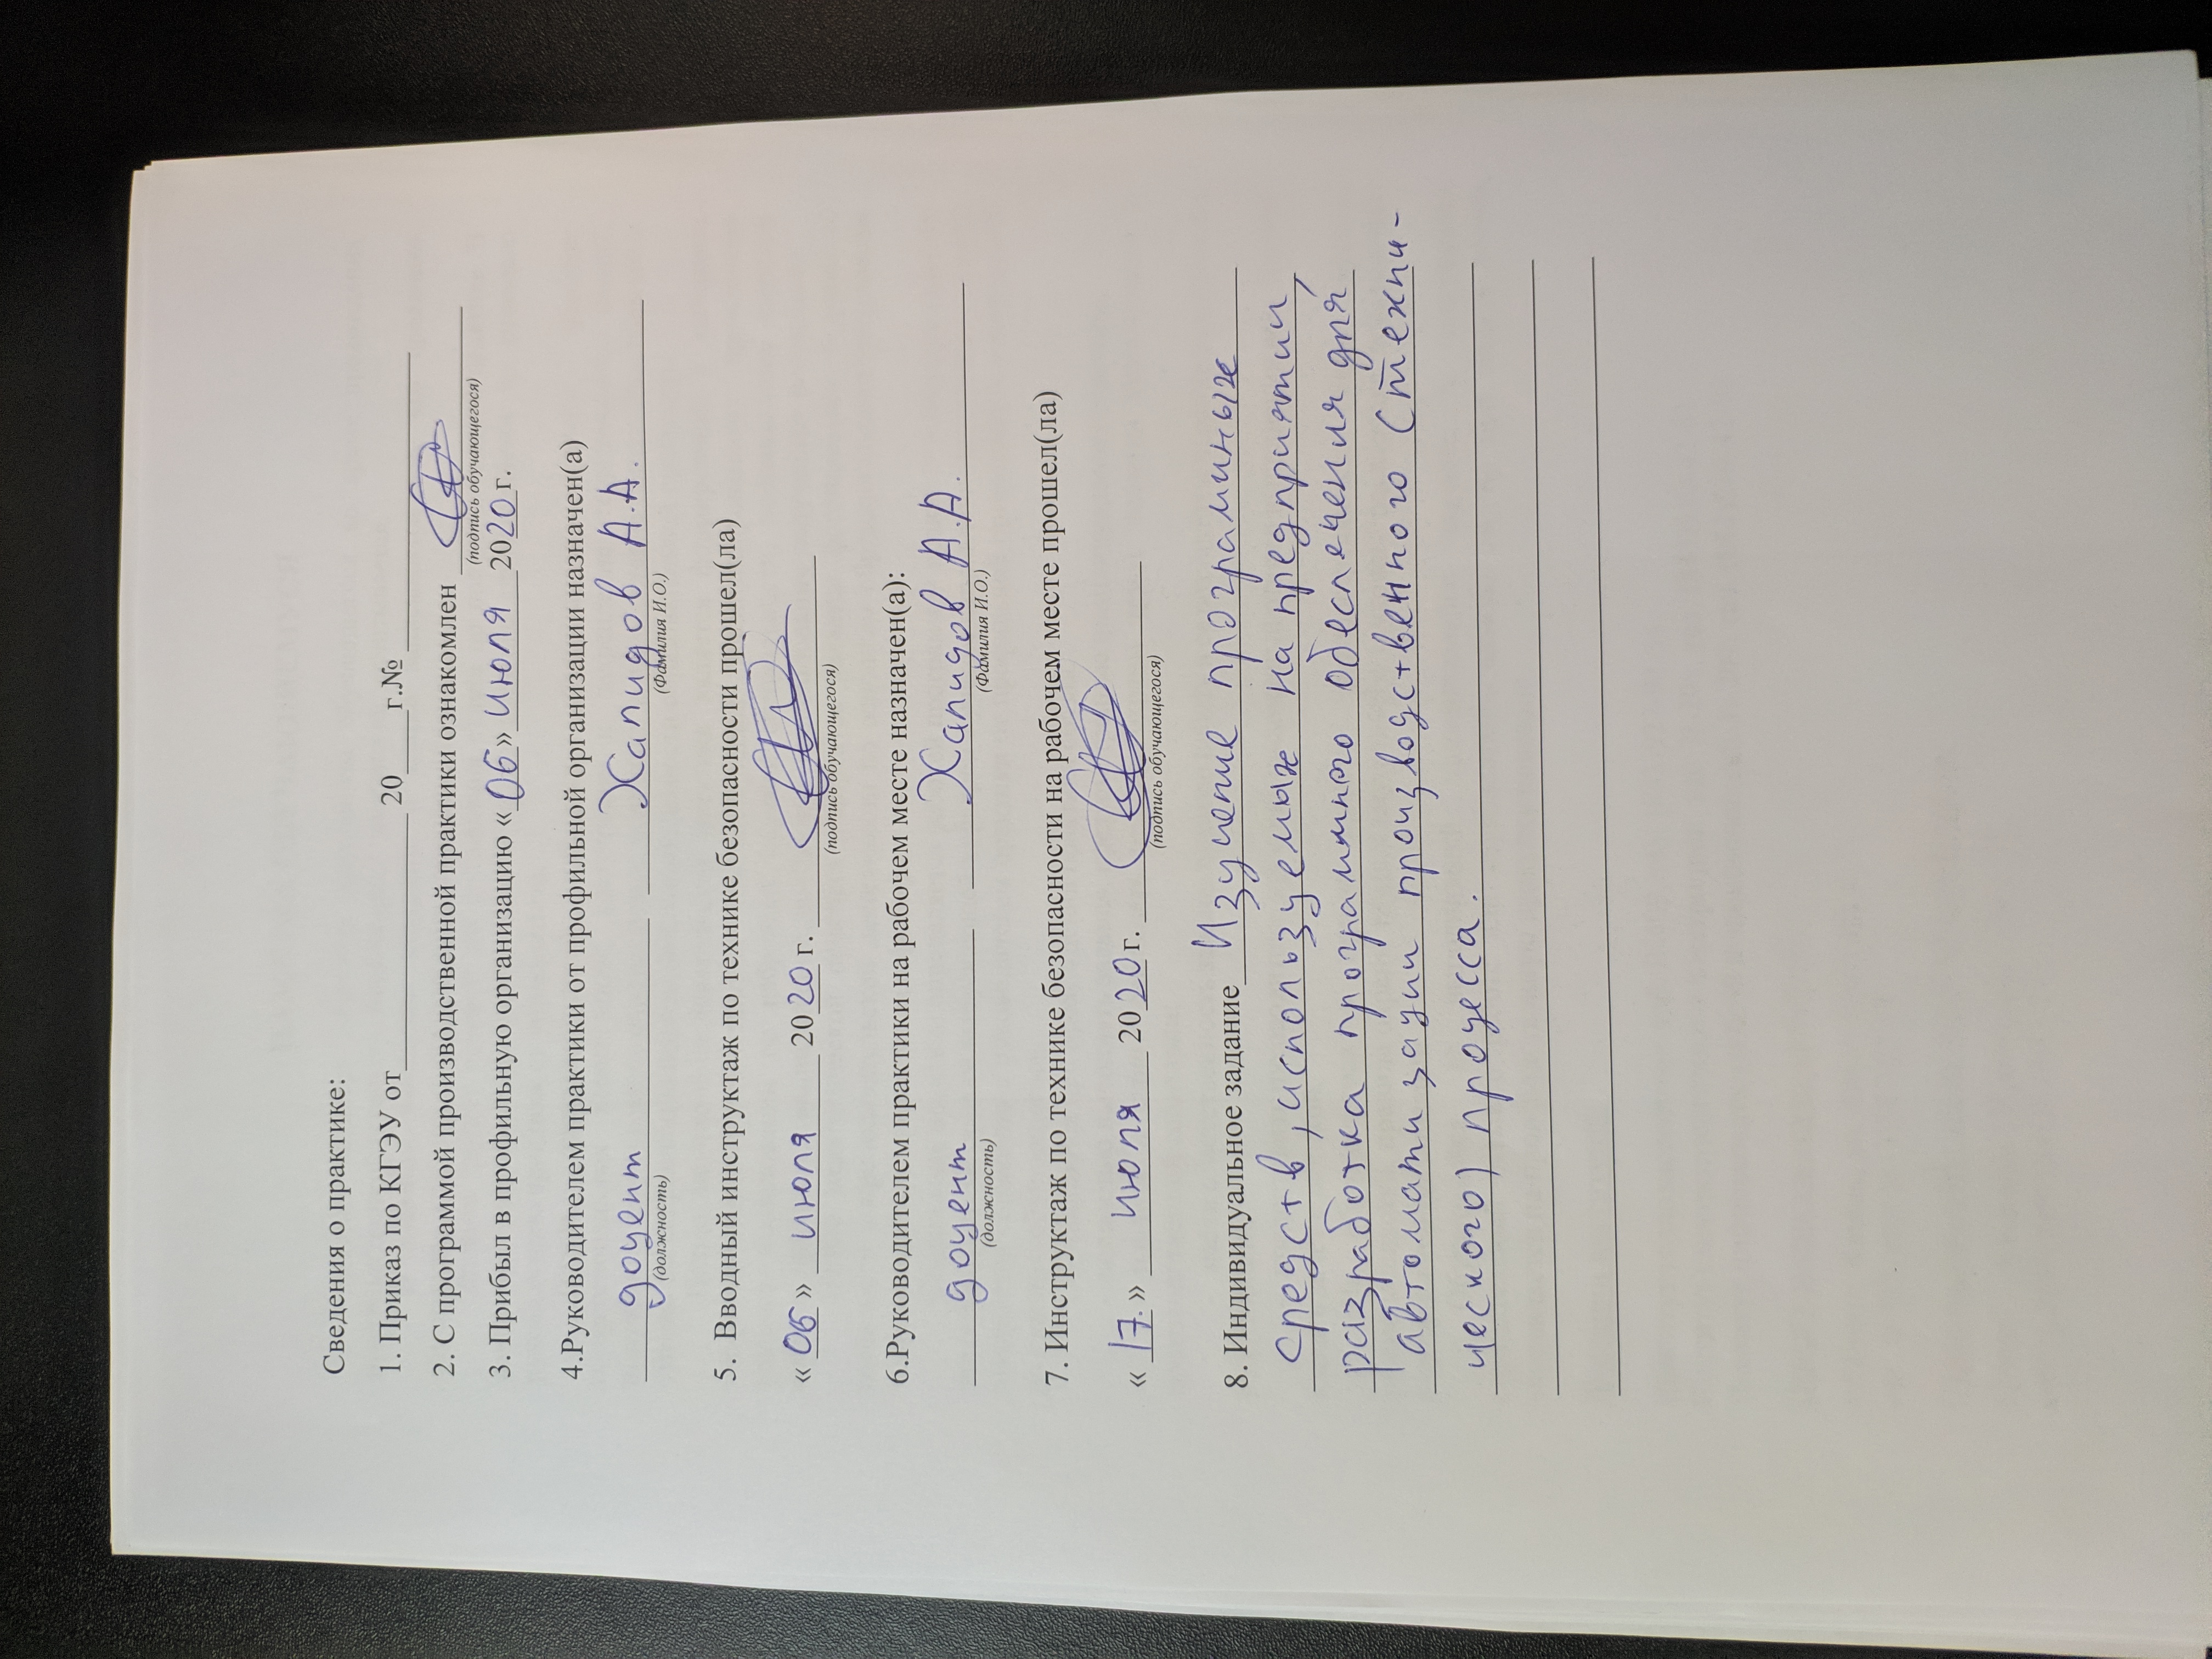 Сведения о практике:
1. Приказ по КГЭУ от________________ 20____г.№ ___________________
2. С программой производственной практики ознакомлен
(подпись обучающегося)
3. Прибыл в профильную организацию «06» июля 2020 г.
4.Руководителем практики от профильной организации назначен(а)
доцент Халидов А.А.
(должность) (Фамилия И.О.)
5. Вводный инструктаж по технике безопасности прошел(ла)
« 06 » июля 2020 г.
(подпись обучающегося)
6.Руководителем практики на рабочем месте назначен(а):
доцент Халидов А.А.
(должность) (Фамилия И.О.)
7. Инструктаж по технике безопасности на рабочем месте прошел(ла)
« 17 » июля 2020 г.
(подпись обучающегося)
8. Индивидуальное задание Изучение программных
средств, используемых на предприятии,
разработка программного обеспечения для
автоматизации производственного (техни-
ческого) процесса.